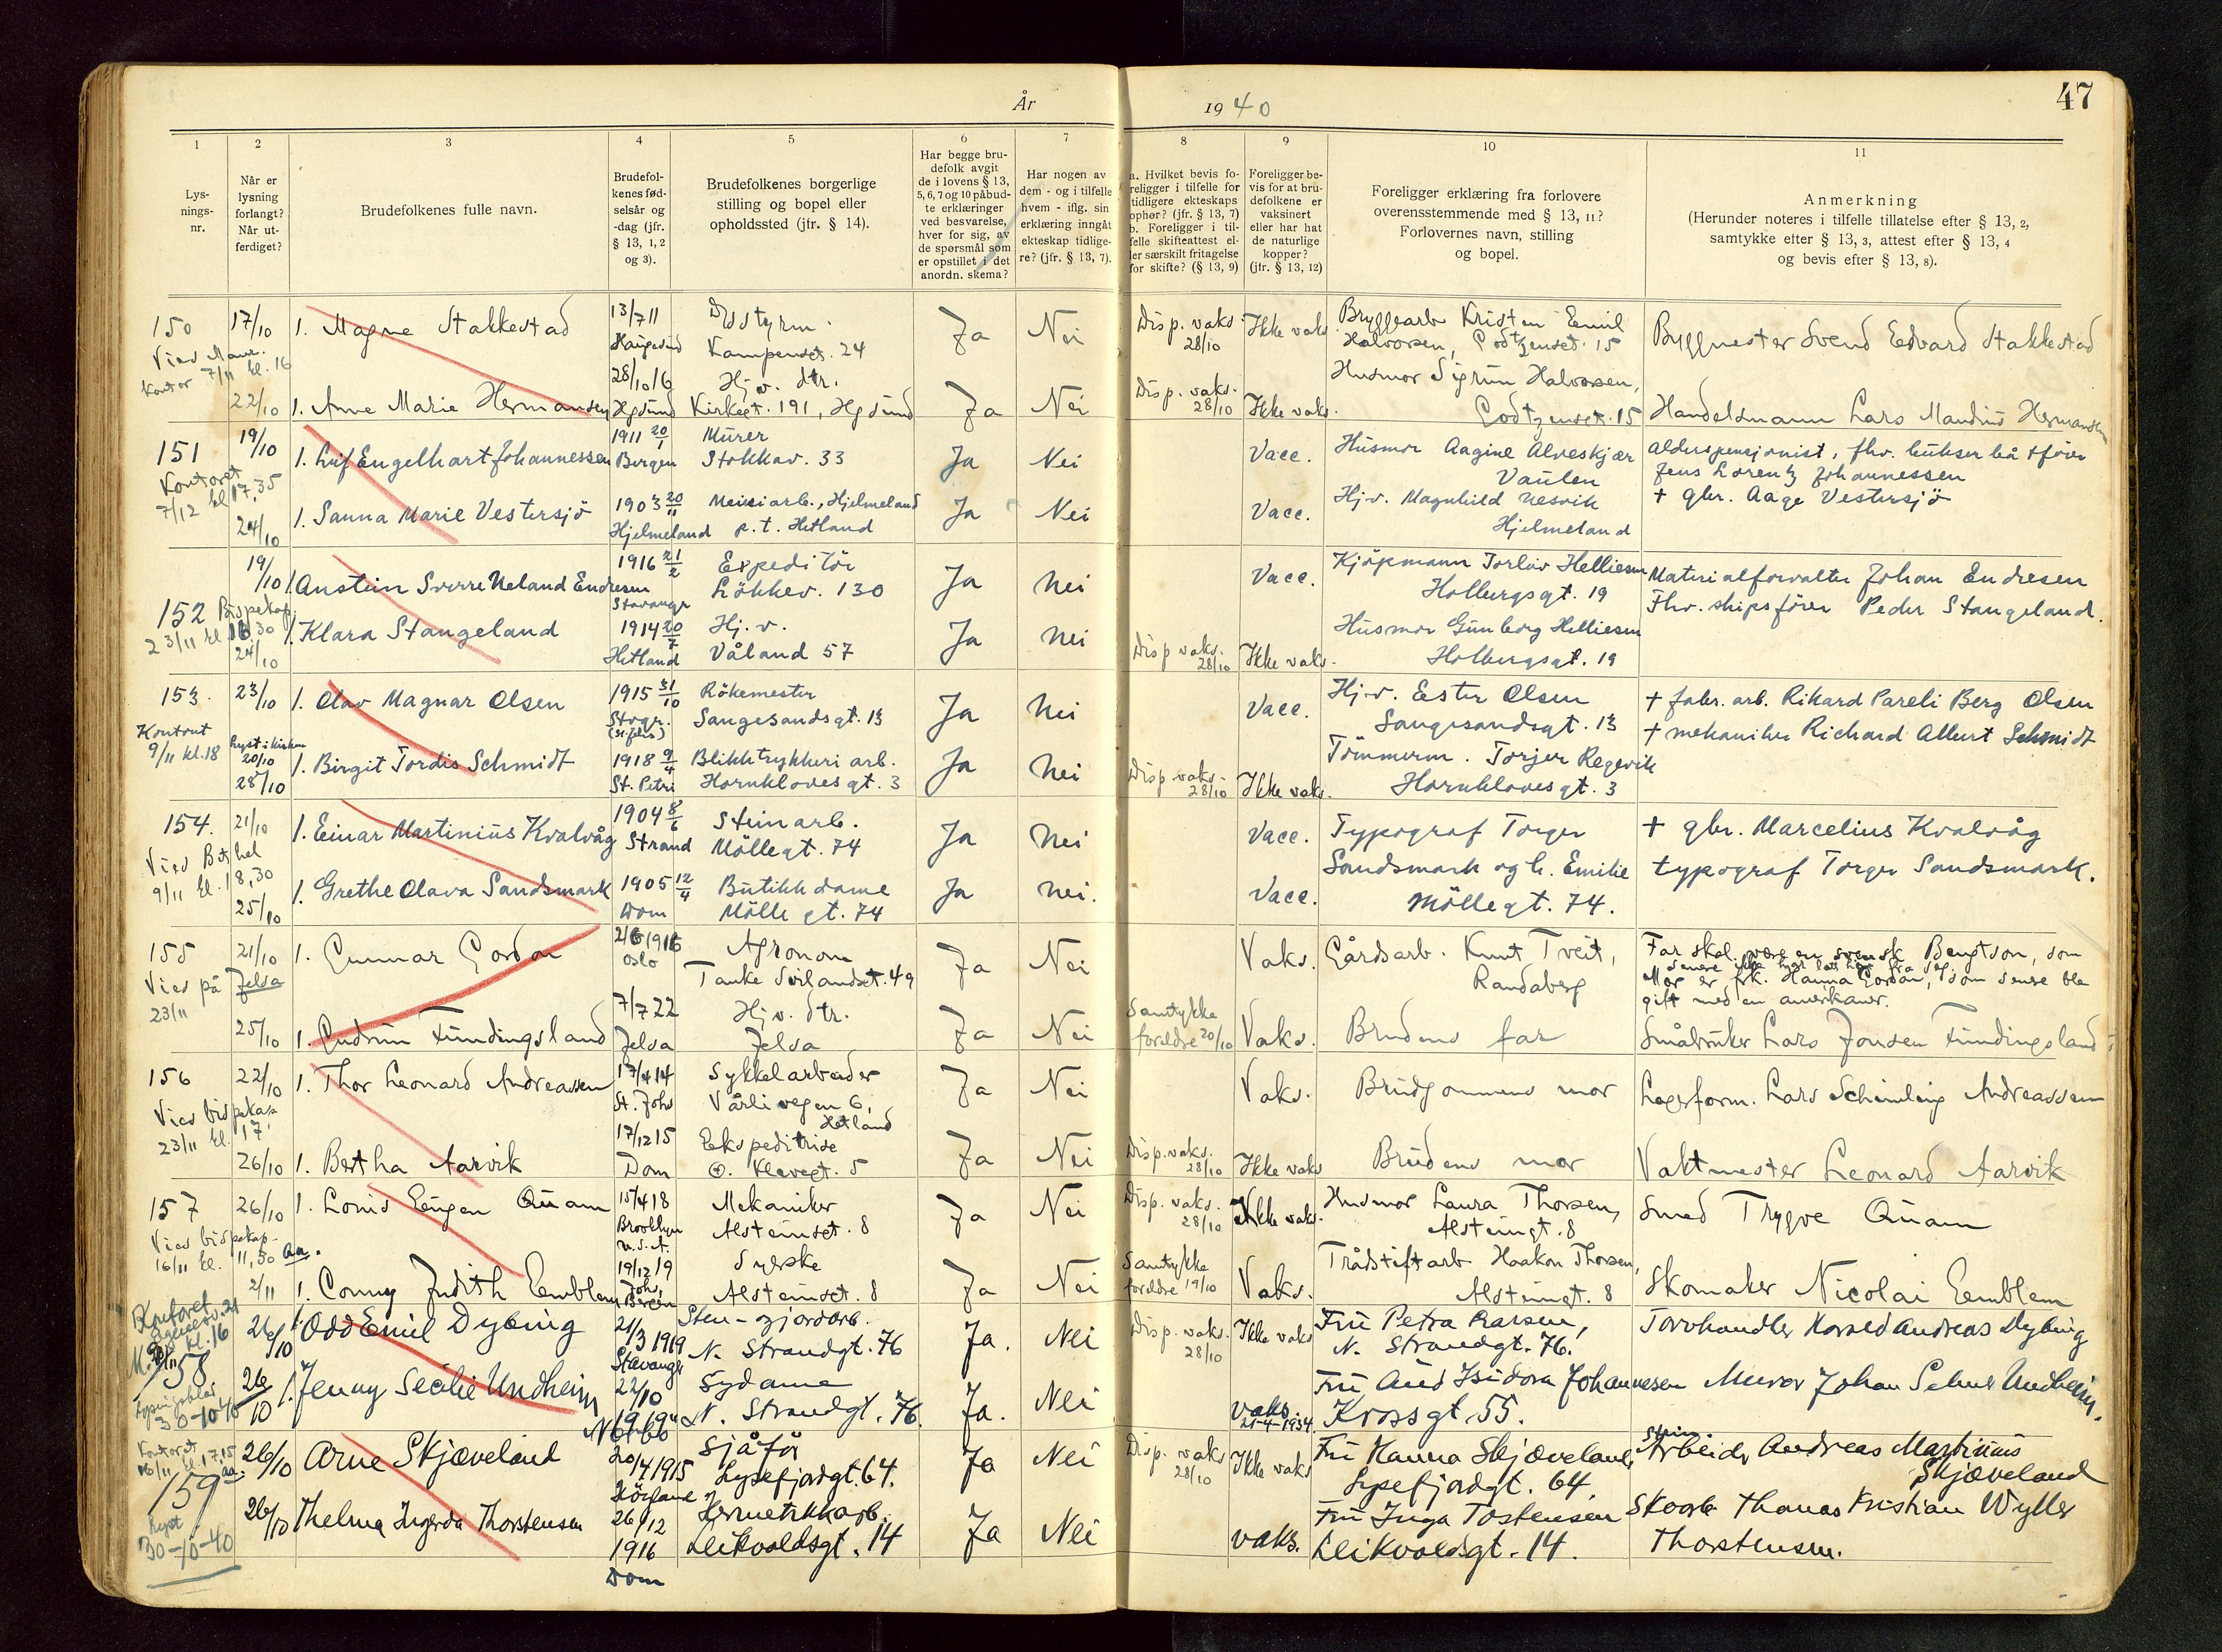 År 1940
47
1
2
3
4
5
6
7
8
9
10
11
Lys-
nings-
nr.
Når er
lysning
forlangt?
Når ut-
ferdiget?
Brudefolkenes fulle navn.
Brudefol-
kenes fød-
selsår og
-dag (jfr.
§ 13, 1, 2
og 3).
Brudefolkenes borgerlige
stilling og bopel eller
opholdssted (jfr. § 14).
Har begge bru-
defolk avgit
de i lovens § 13,
5, 6, 7 og 10 påbud-
te erklæringer
ved besvarelse,
hver for sig, av
de spørsmål som
er opstillet i det
anordn. skema?
Har nogen av
dem - og i tilfelle
hvem - iflg. sin
erklæring inngåt
ekteskap tidlige-
re? (jfr. § 13, 7).
a. Hvilket bevis fo-
religger i tilfelle for
tidligere ekteskaps
ophør? (jfr. § 13, 7)
b. Foreligger i til-
felle skifteattest el-
ler særskilt fritagelse
for skifte? (§ 13, 9)
Foreligger be-
vis for at bru-
defolkene er
vaksinert
eller har hat
de naturlige
kopper?
(jfr. § 13, 12)
Foreligger erklæring fra forlovere
overensstemmende med § 13, 11?
Forlovernes navn, stilling
og bopel.
Anmerkning
(Herunder noteres i tilfelle tillatelse efter § 13, 2,
samtykke efter § 13, 3, attest efter § 13, 4
og bevis efter § 13, 8).
150 17/10 1. Magne Stakkestad 13/7 11 Ja Nei Disp. vaks. 28/10 Ikke vaks. Bryggearb Kristen Emil Byggmester Svend Edvard Stakkestad
Haugesund Kampenset. 24 Halvorsen, Godtzenset. 15
7/11 kl. 16
28/10 16 Hj.v. dtr. Husmor Sigrun Halvorsen,
22/10 1. Anne Marie Hermansen Hgsund Kirkegt. 191, Hgsund Ja Nei Disp. vaks. 28/10 Ikke vaks. Godtzenset. 15 Handelsmann Lars Mandius Hermansen
151 19/10 1. Leif Engelhart Johannessen 1911 20/1 Bergen Murer Stokkav. 33 Ja Nei Vacc. Husmor Aagine Alveskjær Vaulen alderspensjonist, fhv.
Jens Lorentz Johannessen
Kontoret
7/12 kl 17,35
24/10 1. Sanna Marie Vestersjö 1903 20/11 Hjelmeland Meieriarb., Hjelmeland p.t. Hetland Ja Nei Vacc. Hj.v. Magnhild Nesvik Hjelmeland + gbr. Aage Vestersjö
19/10 1. Austein Sverre Neland Endresen 1916 21/2 Stavanger Expeditör Lökkev. 130 Ja Nei Vacc. Kjöpmann Torleiv Helliesen Holbergsgt. 19 Materialforvalter Johan Endresen
152 Bispekap. 23/11 kl 16,30
24/10 1. Klara Stangeland 1914 20/7 Hetland Hj.v. Våland 57 Ja Nei Disp vaks. 28/10 Ikke vaks. Husmor Gunborg Helliesen Holbergsgt. 19 Fhv. skipsförer Peder Stangeland.
153. 23/10 1. Olav Magnar Olsen 1915 31/10 Stvgr. Rökemester Sangesandsgt. 13 Ja Nei Vacc. Hj.v. Ester Olsen Sangesandsgt. 13 + fabr. arb. Rikard Pareli Berg Olsen
Kontoret 9/11 kl. 18 20/10
28/10 1. Birgit Tordis Schmidt 1918 9/4 St. Petri Blikktrykkeri arb. Hornklovesgt. 3 Ja Nei Disp vaks. 28/10 Ikke vaks. Tömmerm. Torjer Regevik Hornklovesgt. 3 + mekaniker Richard Albert Schmidt
154. 21/10 1. Einar Martinius Kvalvåg 1904 8/6 Strand Steinarb. Möllegt. 74 Ja Nei Vacc. Typograf Torger + gbr. Marcelius Kvalvåg
Viet Bethel 9/11 kl. 18,30
25/10 1. Grethe Olava Sandsmark 1905 12/4 Dom Butikkdame Möllegt. 74 Ja Nei. Vacc. Sandsmark og h. Emilie Möllegt. 74. typograf Torger Sandsmark.
155 21/10 1. Gunnar Gordon 2/6 1916 Oslo Agronom Tanke Svilandsgt. 49 Ja Nei Vaks. Gårdsarb. Knut Tveit, Randaberg Far skal være en svensk Bengtson, som
Mor er frk. Hanna Gordon, som senere ble
gift med en amerikaner.
Viet på Jelsa 23/11
25/10 1. Gudrun Fundingsland 7/7 22 Jelsa Hj.v. dtr. Jelsa Ja Nei Samtykke foreldre 20/10 Vaks. Brudens far Småbruker Lars Jonsen Fundingsland
156 22/10 1. Thor Leonard Andreassen 17/4 14 St. Johs Sykkelarbeider Vårlivegen 6, Hetland Ja Nei Vaks. Brudgommens mor Lagerform. Lars Andreassen
Viet bispekap. 23/11 kl. 17
26/10 1. Bertha Aarvik 17/12 15 Dom Ekspeditrise Ø. Klevegt. 5 Ja Nei Disp. vaks. 28/10 Ikke vaks Brudens mor Vaktmester Leonard Aarvik
157 26/10 1. Louis Eugen Quam 15/4 18 Brooklyn U.S.A. Mekaniker Alsteinsgt. 8 Ja Nei Disp. vaks. 28/10 Ikke vaks. Husmor Laura Thorsen, Alsteinsgt. 8 Smed Trygve Quam
Viet bispekap. 16/11 kl. 11,30 aa.
2/11 1. Conny Judith Eemblem 19/12 19 Johs, Bergen Syerske Alsteinsgt. 8 Ja Nei Samtykke foreldre 19/10 Vaks. Trådstiftarb Haakon Thorsen, Alsteinsgt. 8 Skomaker Nicolai Eemblem
Kontoret kl. 16
158 26/10 1. Odd Emil Dybing 21/3 1919 Stavanger Sten- jordarb. N. Strandgt. 76 Ja. Nei Disp. vaks. 28/10 Ikke vaks Fru Petra Larsen, N. Strandgt. 76. Torvhandler Harald Andreas Dybing
30-10-40
26/10 1. Jenny Secilie Undheim 22/10 1919 Sydame N. Strandgt. 76. Ja. Nei vaks. 21-4-1934. Fru Aud Isidora Johannesen Krossgt. 55. Murer Johan Undheim.
Kontoret 16/11 kl. 17,15 aa.
159 26/10 Arne Skjæveland 20/4 1915 Sjåför Lysefjordgt. 64. Ja Nei Disp. vaks 28/10 Ikke vaks Fru Hanna Skjæveland, Lysefjordgt. 64. Stein Arbeider Andreas Martinius Skjæveland
Lyst 30-10-40
26/10 Thelma Ingerda Thorstensen 26/12 1916 Dom Hermetikkarb. Leikvoldsgt. 14 Ja Nei vaks. Fru Inga Tostensen Leikvoldsgt. 14. Skoarb Thomas Kristian Wyller Thorstensen.